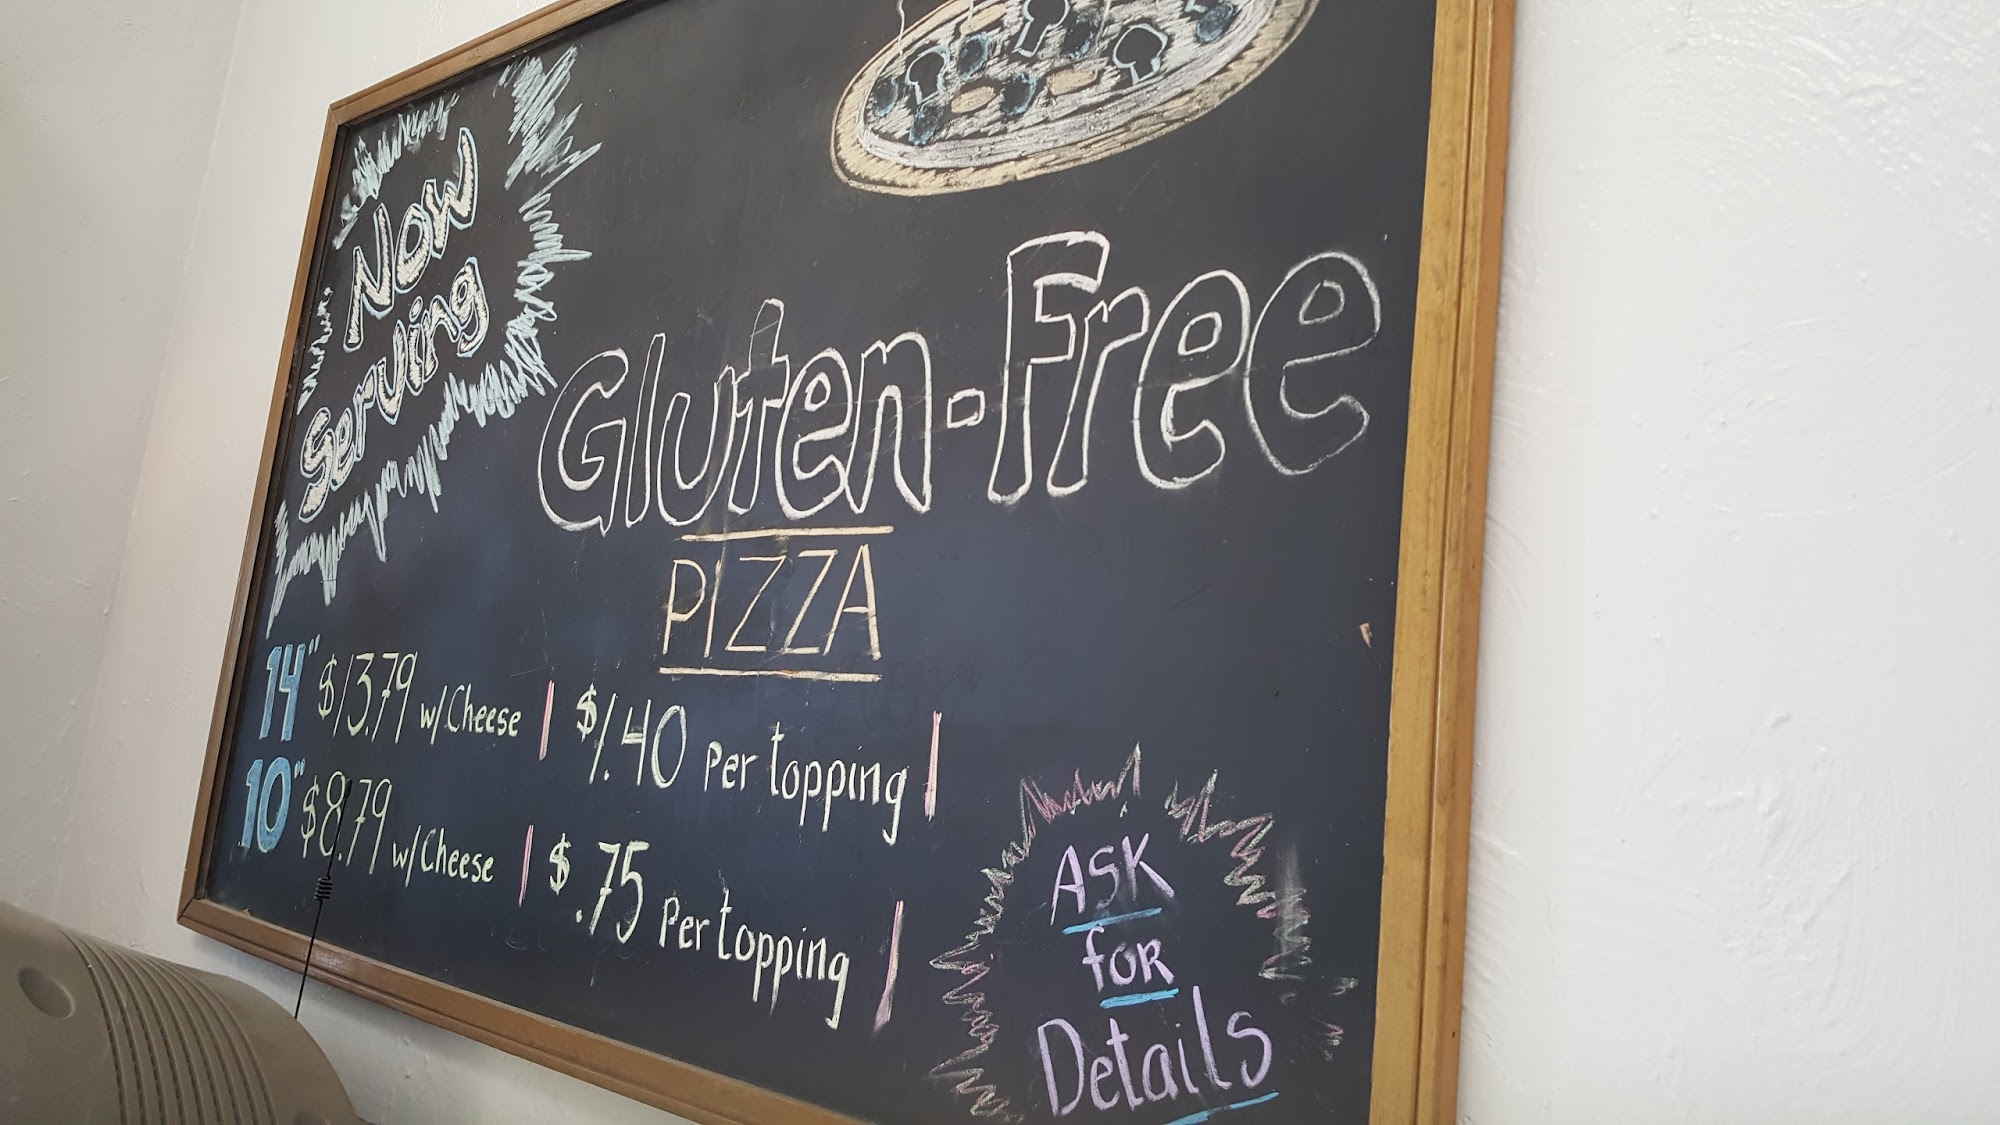 Now
Serving
Gluten-Free
PIZZA
14" $13.79 w/ Cheese | $1.40 Per topping |
10" $8.79 w/ Cheese | $.75 Per topping |
ASK
for
Details